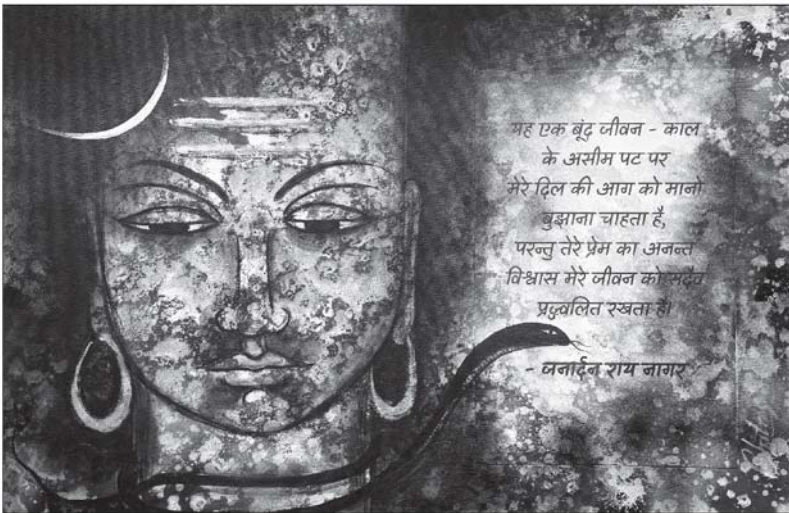 यह एक बूंद जीवन - काल
के असीम पट पर
मेरे दिल की आग को मानो
बुझाना चाहता है,
परन्तु तेरे प्रेम का अनन्त
विश्वास मेरे जीवन को सदैव
प्रज्वलित रखता है।
- जनार्दन राय नागर